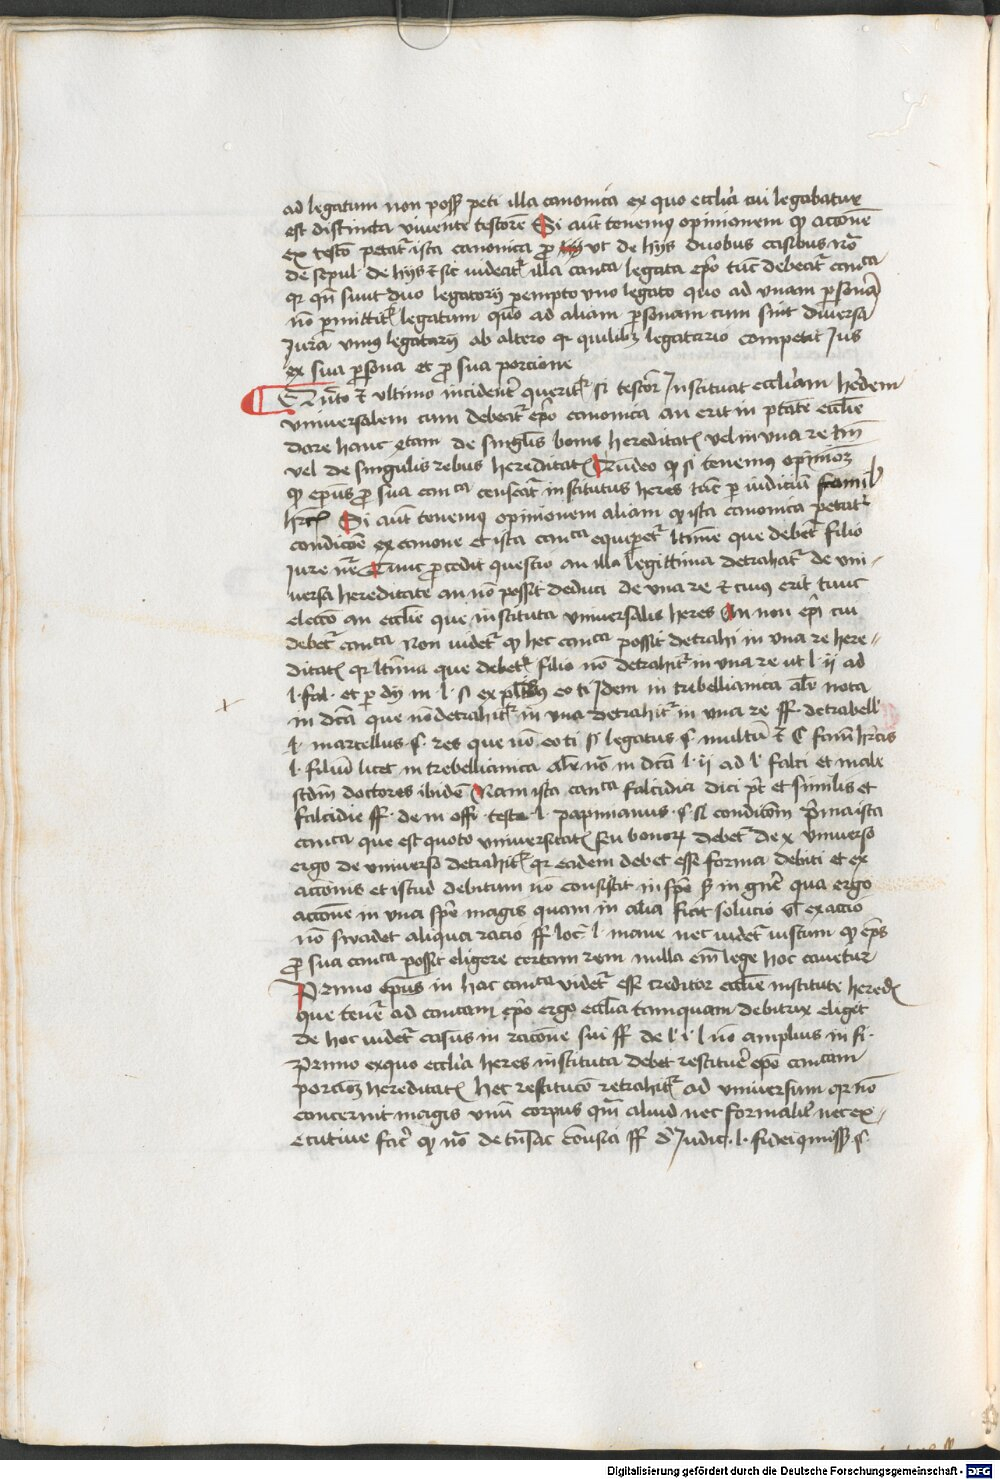 ad legatum non poss peti illa canonica ex quo ecclia cui legabatur
est distincta vivente testore Si aut tenemus opinionem q accione
ex testo petat ista canonica pro ut de hys duobus casibus no
de sepul de hys et sic videat illa canca legata epo tuc debeat canca
qr qn sunt duo legatarii pempto uno legato quo ad unam personam
no permittit legatum quo ad aliam personam cum sint diversa
Jura unius legatarii ab altero qr quilibz legatario competit Jus
ex sua persona et pro sua porcione
et ultimo incidenter querit si testor Instituat eccliam heredem
universalem cum debeat epo canonica an erit in ptate ecclie
dare hanc de singulis bonis hereditatis vel in una re tm
vel de singulis rebus hereditatis Rndeo q si tenemus opinionem
q epus pro sua canca censeat institutus heres tuc per iudiciu famil
herc Si aut tenemus opinionem aliam q ista canonica petat
condicoe ex canone et ista canca equiperet ltime que debet filio
Jure ne Tunc procedit questio an illa legittima detrahat de uni-
versa hereditate an no possit deduci de una re et cuius erit tunc
eleccio an ecclie que instituta universalis heres An non epi cui
debet canca Non videt q hec canca possit detrahi in una re here-
ditatis qr ltima que debet filio no detrahit in una re ut l ii ad
l fal et per dy in l si ex pluribus eo ti Idem in tribellianica als nota
in dca que no detrahit in una detrahit in una re ff de trabell
l marcellus s res que no eo ti si legatus s multu et C fam hercis
l filiu licet in trebellianica als no in dca l ii ad l falci et male
scdm doctores ibide Nam ista canca falcidia dici pt et similis et
falcidie ff de in offi teste l papinianus s si condicom prima ista
canca que est quoto universitatis seu bonorum debet de x universo
ergo de universo detrahit qr eadem debet esse forma debiti et ex
accionis et istud debitum no consistit in spe sed in gne qua ergo
accione in una spe magis quam in alia ficit solucio vel exaccio
no swadet aliqua racio ff loc l in nave nec videt iustum q eps
pro sua canca possit eligere certam rem nulla em lege hoc cavetur
Primo epus in hac canca videt esse creditor ecclie institute heredis
que tenet ad cancam epo ergo ecclia tamquam debitrix eliget
de hoc videt casus in racione sui ff de l i l no amplius in fi
Primo exquo ecclia heres instituta debet restituere epo cancam
porcionem hereditatis hec restitucio retrahit ad universum qr no
concernit magis unu corpus qm aliud nec formalit nec ex-
ecutive facit q no de trnsac ff de Judic l fideicomiss s
Digitalisierung gefördert durch die Deutsche Forschungsgemeinschaft - DFG